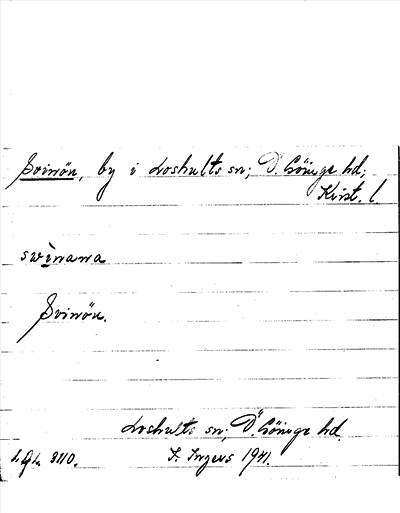 Svinön, by i Loshults sn; Ö. Göinge hd;
Krist. l.
swinana
Svinön.
Loshults sn; Ö. Göinge hd.
3110. I. Ingers 1941.